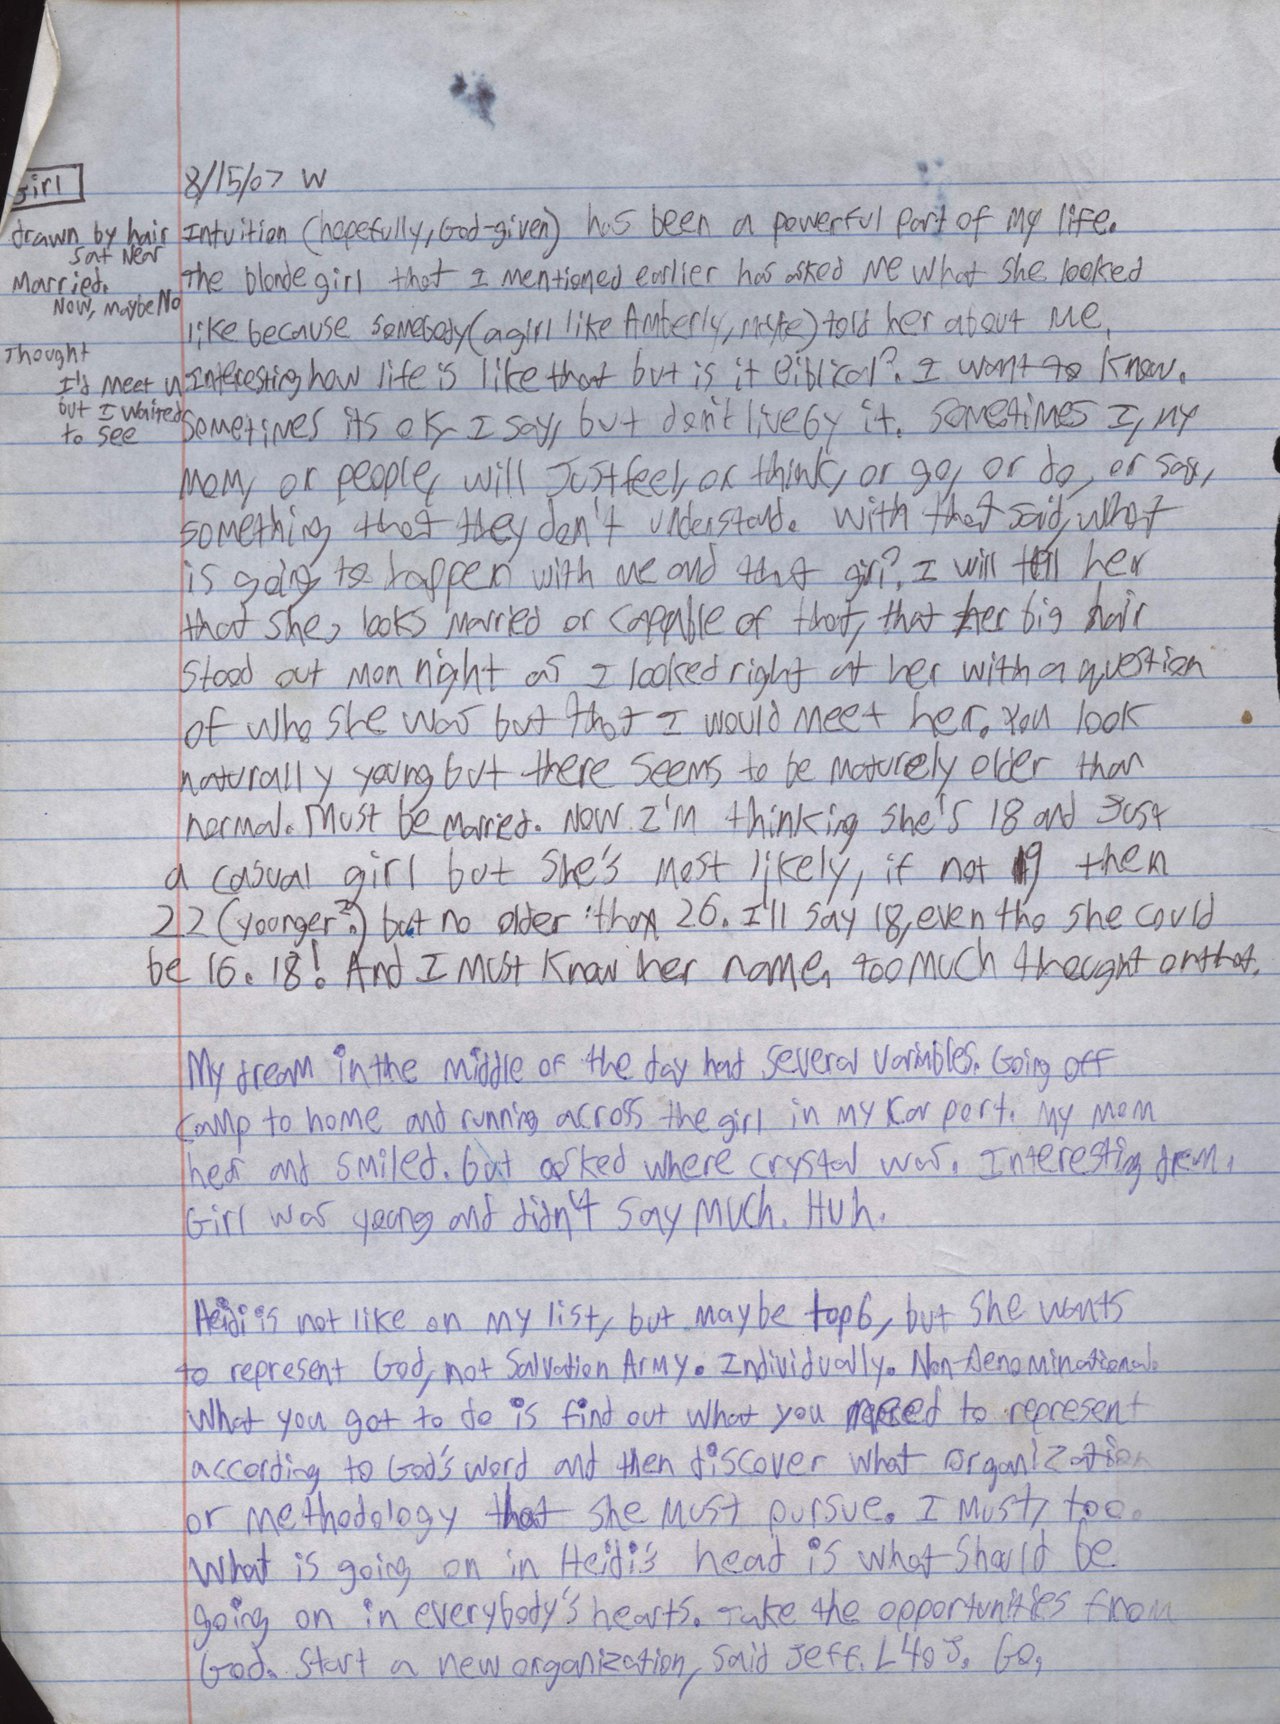 Girl
drawn by hair
sat near
Married.
Now, maybe No
Thought
I'd meet
but I waited
to see
8/15/07 W
Intuition (hopefully, God-given) has been a powerful part of my life.
The blonde girl that I mentioned earlier has asked me what she looked
like because somebody (a girl like Amberly, maybe) told her about me.
Interesting how life is like that but is it Biblical? I want to know.
Sometimes its ok I say, but don't live by it. Sometimes I, my
mom, or people, will Just feel, or think, or go, or do, or say,
something that they don't understand. With that said, what
is going to happen with me and that girl? I will tell her
that she, looks married or cappable of that, that her big hair
stood out mon night as I looked right at her with a question
of who she was but that I would meet her. You look
naturally young but there seems to be maturely older than
normal. Must be Married. Now I'm thinking she's 18 and Just
a casual girl but she's most likely, if not 19 then
22 (younger?) but no older than 26. I'll say 18, even tho she could
be 16. 18! And I must know her name. too much thought on that.
My dream in the middle of the day had several variables. Going off
camp to home and running across the girl in my Kar port. My mom
hear and smiled. But asked where crystal was. Interesting dream.
Girl was young and didn't say much. Huh.
Heidi is not like on my list, but maybe top 6, but she wants
to represent God, not Salvation Army. Individually. Non-Denominational.
What you got to do is find out what you need to represent
according to God's word and then discover what organization
or methodology that she must pursue. I Must, too.
What is going on in Heidi's head is what should be
going on in everybody's hearts. Take the opportunities from
God. Start a new organization, said Jeff. L4oJ. Go,